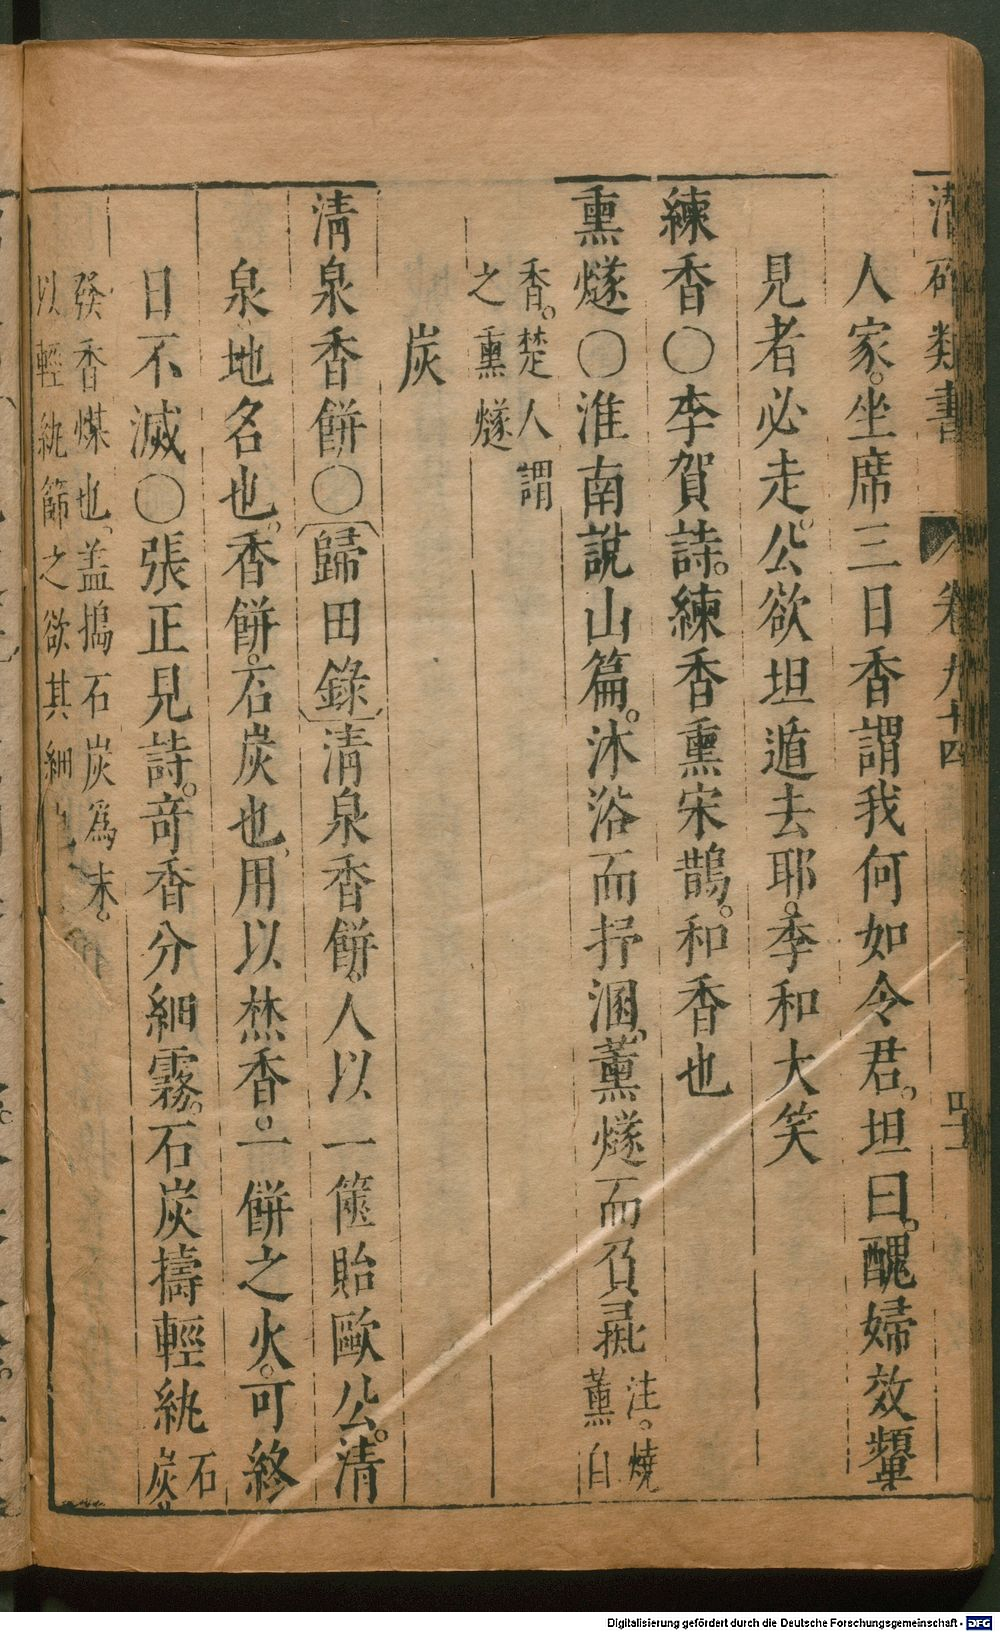 潛確類書 卷九十四 四十二
人家。坐席三日香謂我何如令君。坦曰。醜婦效顰
見者必走。公欲坦遁去耶。季和大笑
練香〇李賀詩。練香熏宋鵲。和香也
熏燧〇淮南說山篇。沐浴而抒溷。薰燧而負彘 注。燒薰自
香。楚人謂
之熏燧
炭
清泉香餅〇歸田錄清泉香餅。人以一篋貽歐公。清
泉、地名也。香餅。石炭也、用以焚香。一餅之火。可終
日不滅〇張正見詩。奇香分細霧。石炭擣輕紈 石炭
發香煤也、盖搗石炭爲末。
以輕紈篩之欲其細
Digitalisierung gefördert durch die Deutsche Forschungsgemeinschaft - DFG